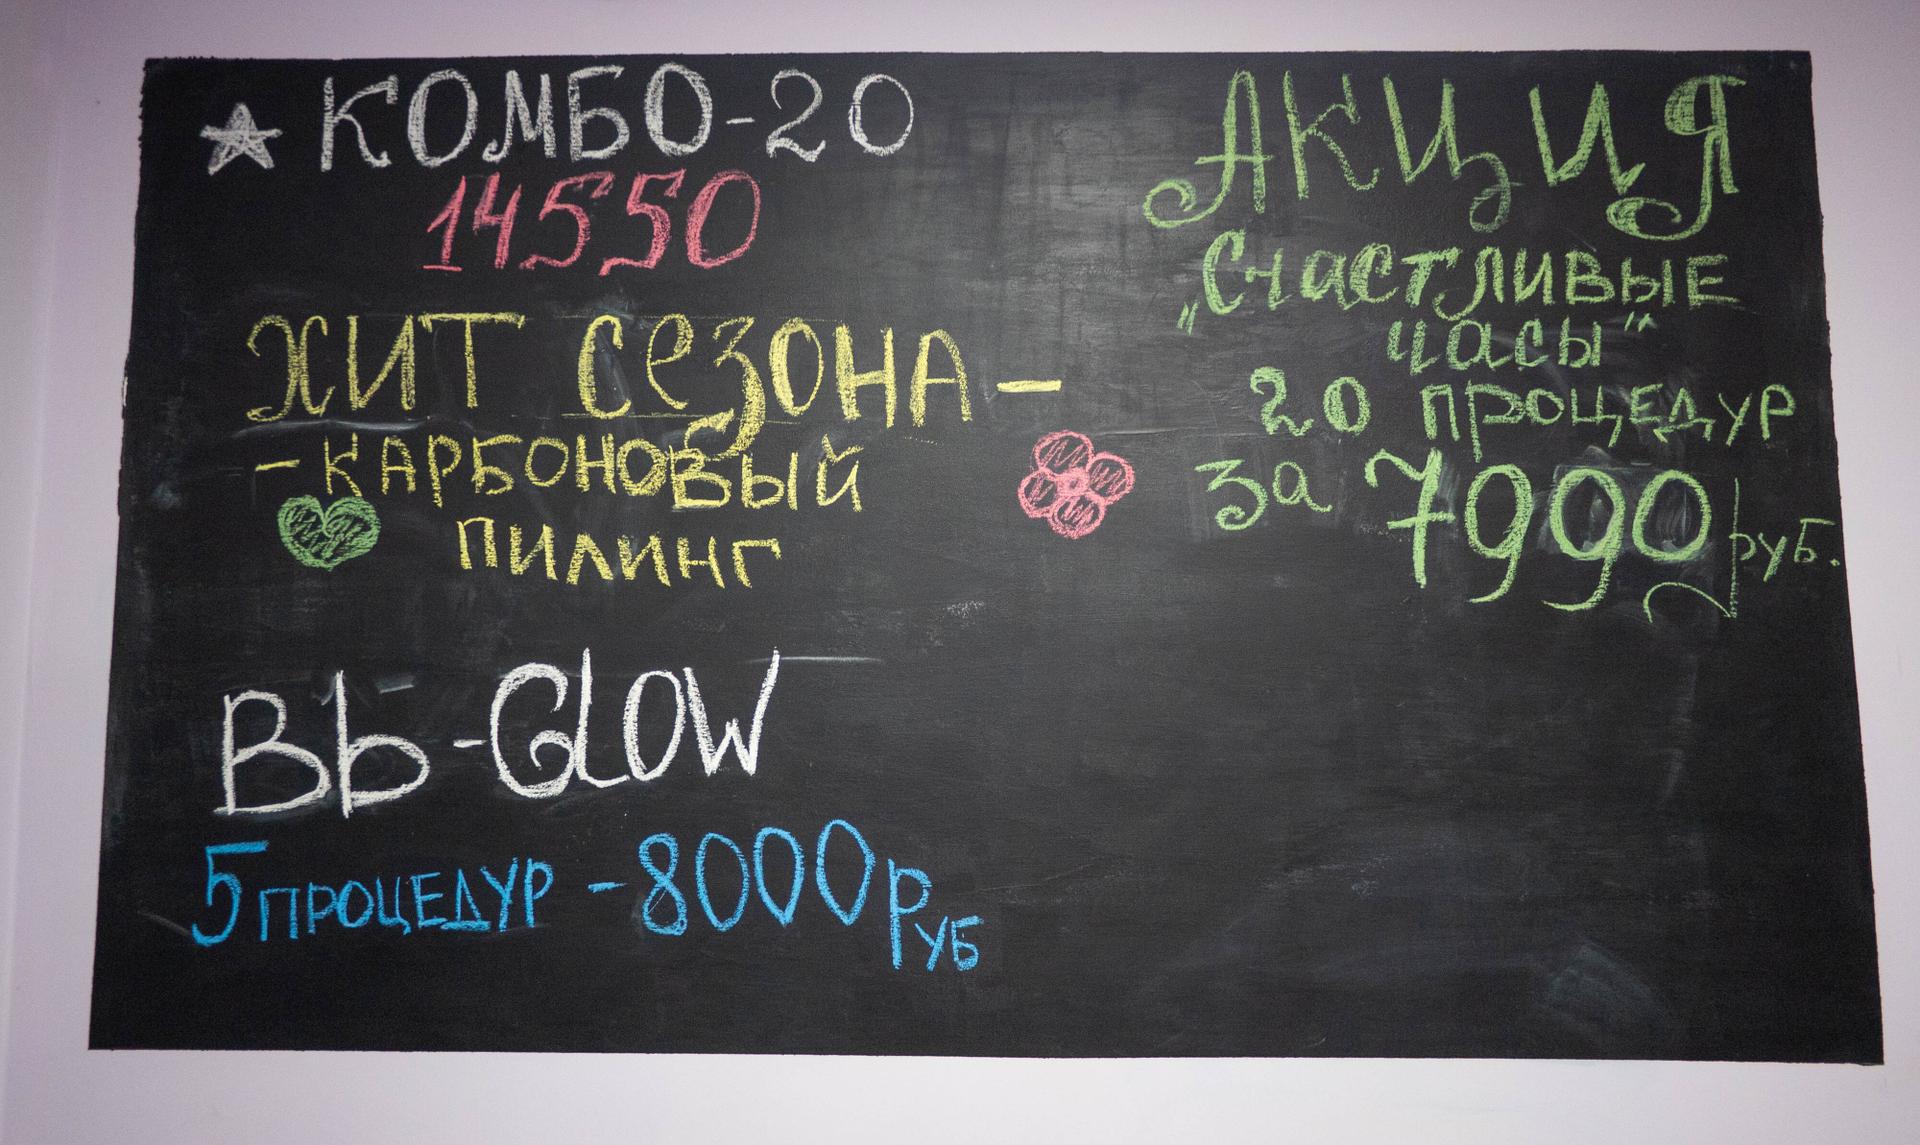 КОМБО-20
14550
ХИТ сезОНА -
- КАРБОНОВЫЙ
ПИЛИНГ
Bb-GLOW
5 ПРОЦЕДУР - 8000 РУБ
АКЦИЯ
„Счастливые
часы“
20 процедур
за 7990 руб.